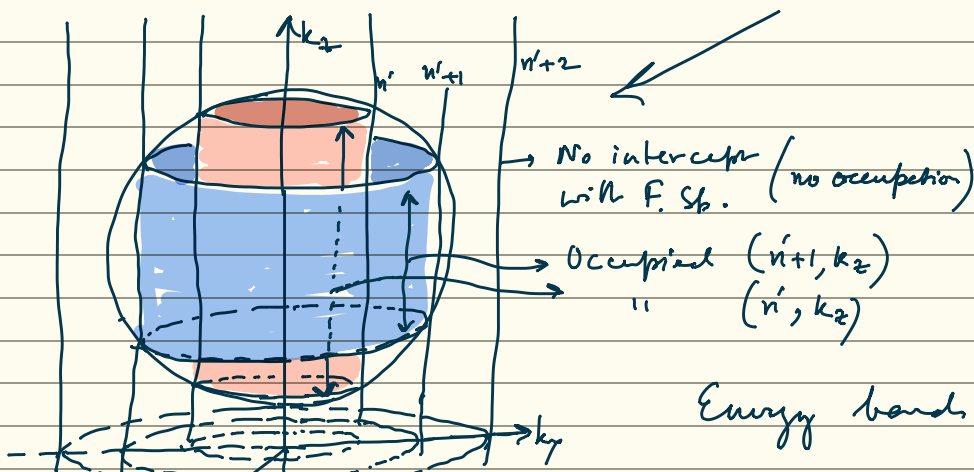 k_z
n' n'+1 n'+2
No intercept
with F. Sp. (no occupation)
Occupied (n'+1, k_z)
" (n', k_z)
Energy bands
k_y